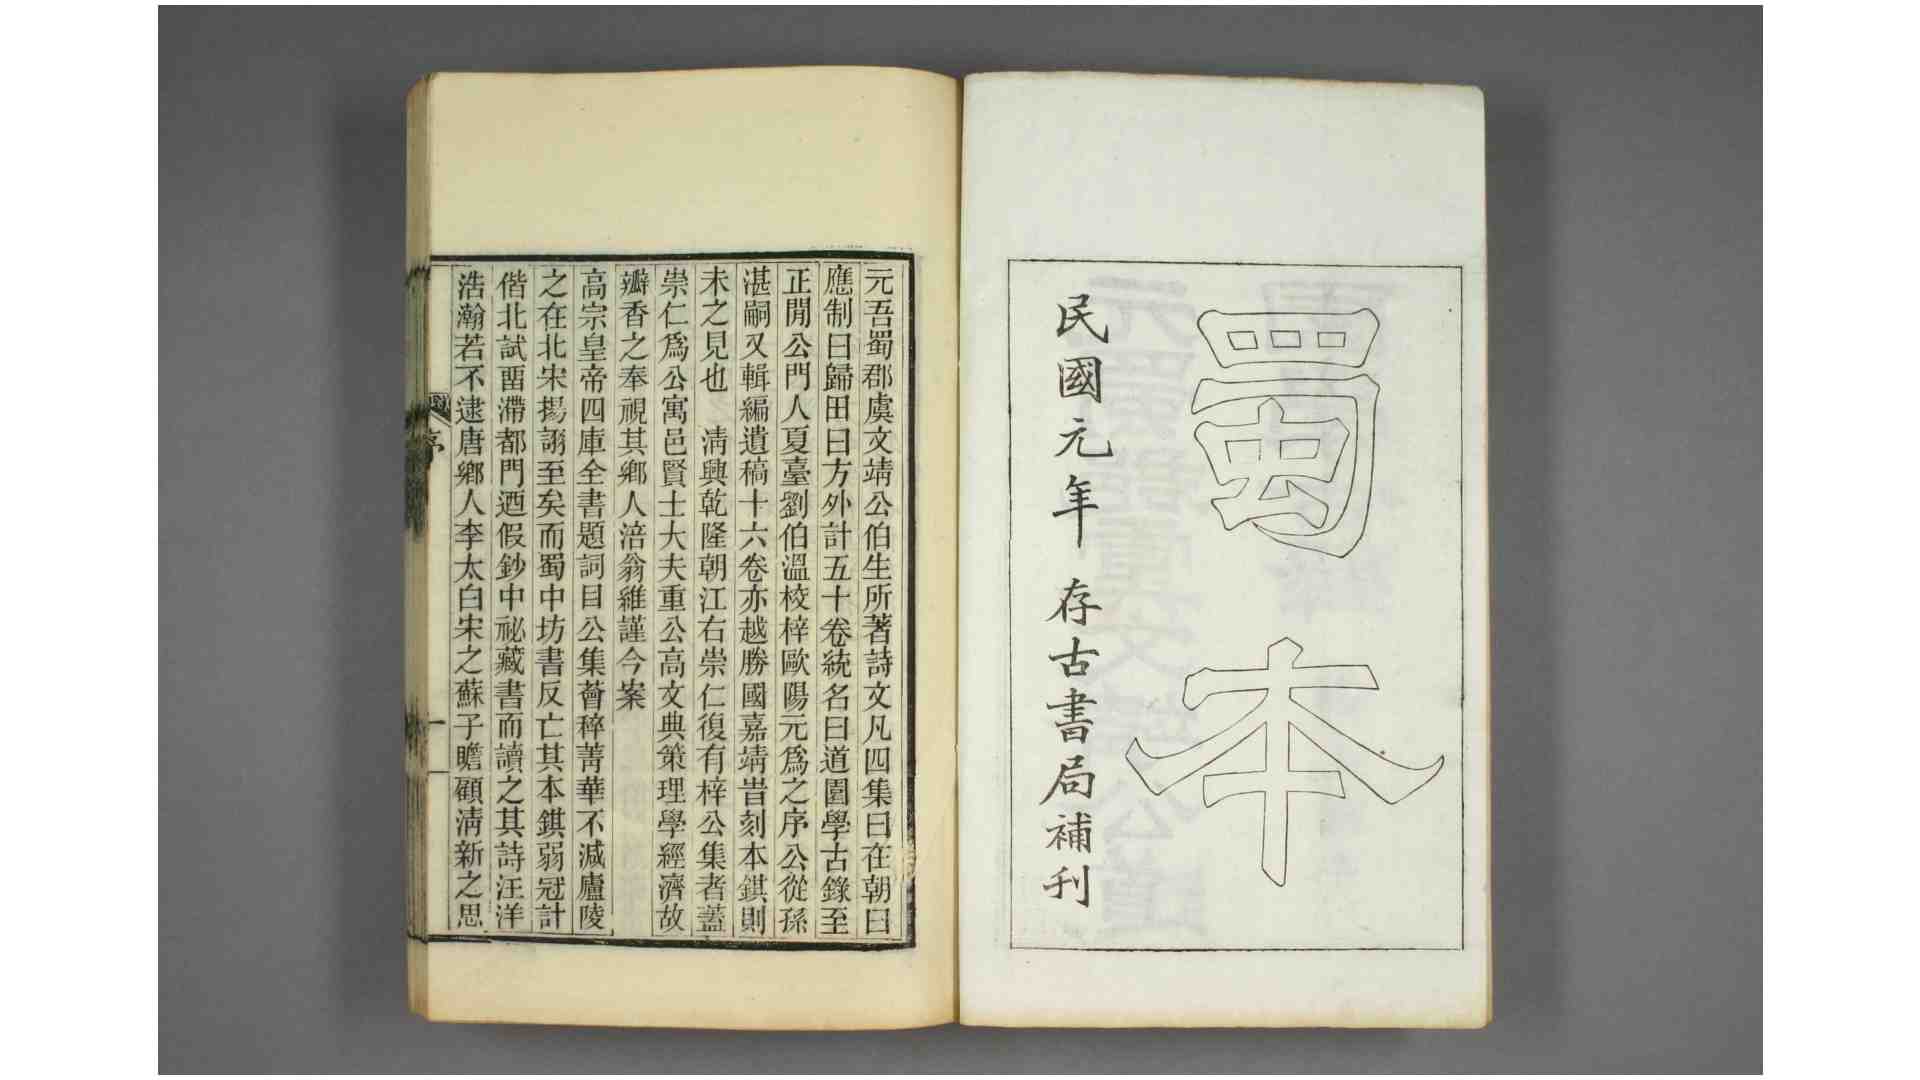 蜀本
民國元年 存古書局補刊
元吾蜀郡虞文靖公伯生所著詩文凡四集曰在朝曰
應制曰歸田曰方外計五十卷統名曰道園學古錄至
正閒公門人夏臺劉伯溫校梓歐陽元爲之序公從孫
湛嗣又輯編遺稿十六卷亦越勝國嘉靖旹刻本錤則
未之見也 淸興乾隆朝江右崇仁復有梓公集者蓋
崇仁爲公寓邑賢士大夫重公高文典策理學經濟故
瓣香之奉視其鄉人涪翁維謹今案
高宗皇帝四庫全書題詞目公集薈稡菁華不減廬陵
之在北宋揚詡至矣而蜀中坊書反亡其本錤弱冠計
偕北試畱滯都門迺假鈔中祕藏書而讀之其詩汪洋
浩瀚若不逮唐鄉人李太白宋之蘇子瞻顧淸新之思
序
一